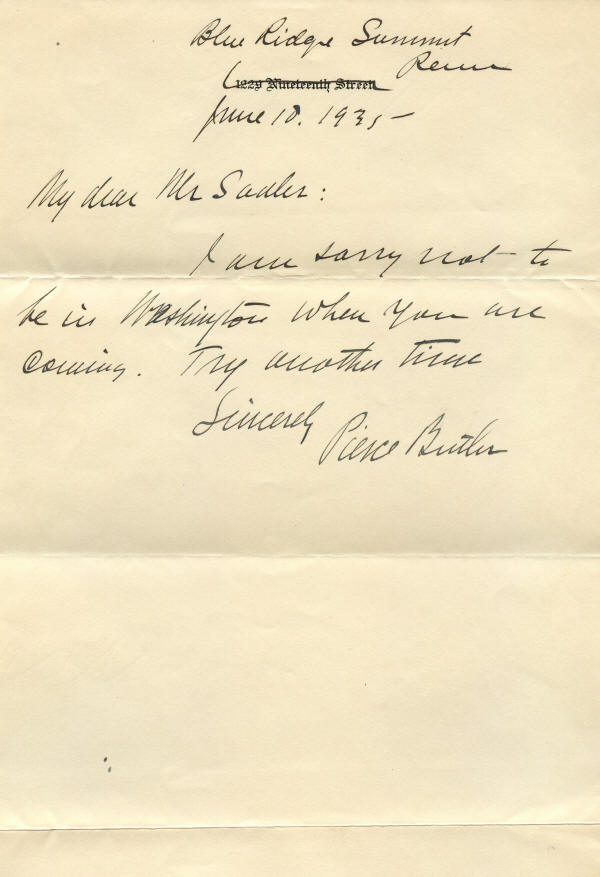 Blue Ridge Summit
Penn
1229 Nineteenth Street
June 10. 1935 –
My dear Mr Sadler:
I am sorry not to
be in Washington when you are
coming. Try another time
Sincerely
Pierce Butler